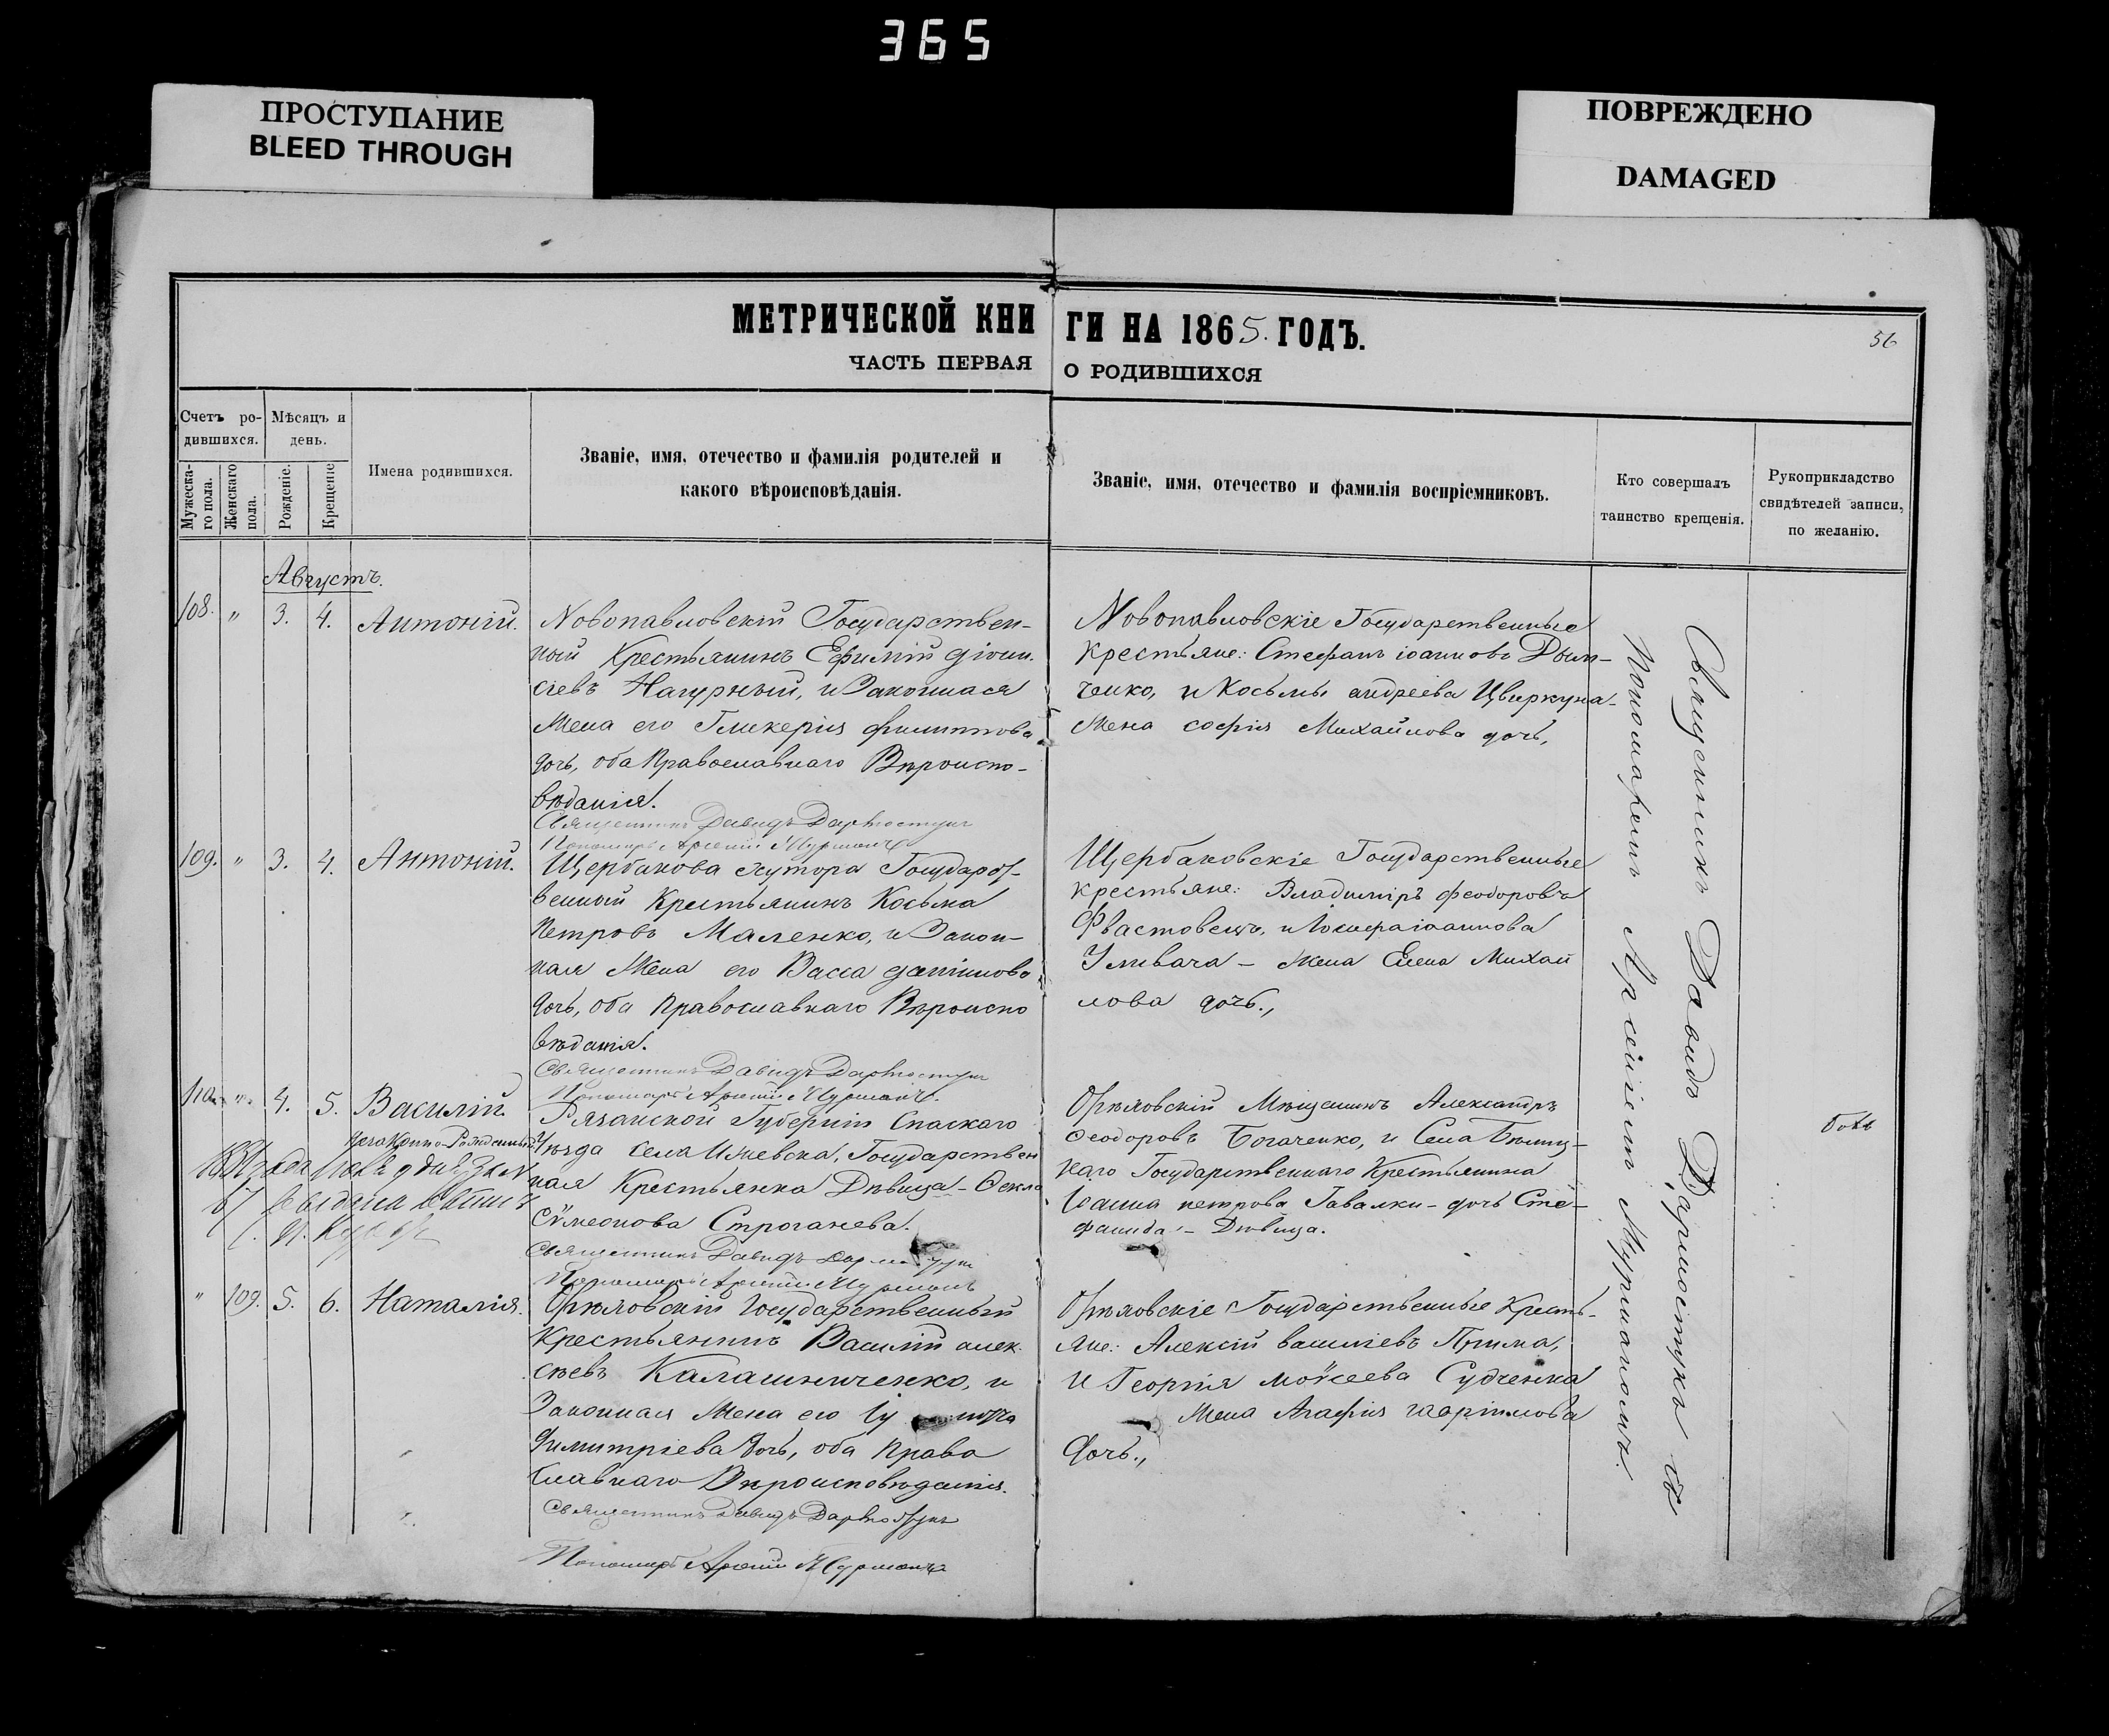 365
ПРОСТУПАНИЕ
BLEED THROUGH
ПОВРЕЖДЕНО
DAMAGED
МЕТРИЧЕСКОЙ КНИ
ГИ НА 1865. ГОДЪ.
56
ЧАСТЬ ПЕРВАЯ
О РОДИВШИХСЯ
Счетъ ро-
дившихся.
Мѣсяцъ и
день.
Мужеска-
го пола.
Женскаго
пола.
Рожденіе.
Крещеніе
Имена родившихся.
Званіе, имя, отечество и фамилія родителей и
какого вѣроисповѣданія.
Званіе, имя, отечество и фамилія воспріемниковъ.
Кто совершалъ
таинство крещенія.
Рукоприкладство
свидѣтелей записи,
по желанію.
Августъ.
108. " 3. 4. Антоній.
Новопавловскій Государствен-
ный Крестьянинъ Ефимій
сіевъ Нагурный, и Законная
Жена его Гликерія филиппова
дочь, оба Православнаго Вѣроиспо-
вѣданія.
Священникъ Давидъ Дармостукъ
Пономарь Арсеній Мурманъ
Новопавловскіе Государственные
крестьяне: Стефанъ іоанновъ Дым-
ченко, и Косьмы андреева Цвиркуна-
жена софія Михайлова дочь,
109. " 3. 4. Антоній.
Щербакова хутора Государст-
венный Крестьянинъ Косьма
Петровъ Маленко, и Закон-
ная Жена его Васса даніилова
дочь, оба Православнаго Вѣроиспо
вѣданія.
Священникъ Давидъ Дармостукъ
Пономарь Арсеній Мурманъ.
Щербаковскіе Государственные
крестьяне: Владиміръ феодоровъ
Фвастовецъ, и Іосифа іоаннова
Уливача - жена Елена Михай
лова дочь.,
110. " 4. 5. Василій.
Незаконно-Рожденный
Рязанской Губерніи Спаскаго
Уѣзда села Ижевска, Государствен
ная Крестьянка Дѣвица - Ѳекла
Сѵмеонова Строганева.
Священникъ Давидъ Дармостукъ
Пономарь Арсеній Мурманъ
Орѣховскій Мѣщанинъ Александръ
Феодоровъ Богаченко, и Села
наго Государственнаго Крестьянина
Іоанна петрова Гавалки - дочь Сте-
фанида - Дѣвица.
" 109. 5. 6. Наталія.
Орѣховскій Государственный
Крестьянинъ Василій алек-
сѣевъ Калашниченко, и
Законная Жена его
Димитріева дочь, оба Право
славнаго Вѣроисповѣданія.
Священникъ Давидъ Дармостукъ
Пономарь Арсеній Мурманъ
Орѣховскіе Государственные Кресть-
яне: Алексій василіевъ Прима,
и Георгія моѵсеева Судченка
жена Агафія гавріилова
дочь.,
Священникъ Давидъ Дармостукъ съ
Пономаремъ Арсеніемъ Мурманомъ.